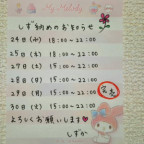 My Melody
しず納めのお知らせ
24日(水) 18:00~22:00
25日(木) 15:00~22:00
27日(土) 15:00~22:00
28日(日) 15:00~22:00
29日(月) 15:00~22:00
30日(火) 15:00~22:00
よろしくお願いします
しずか